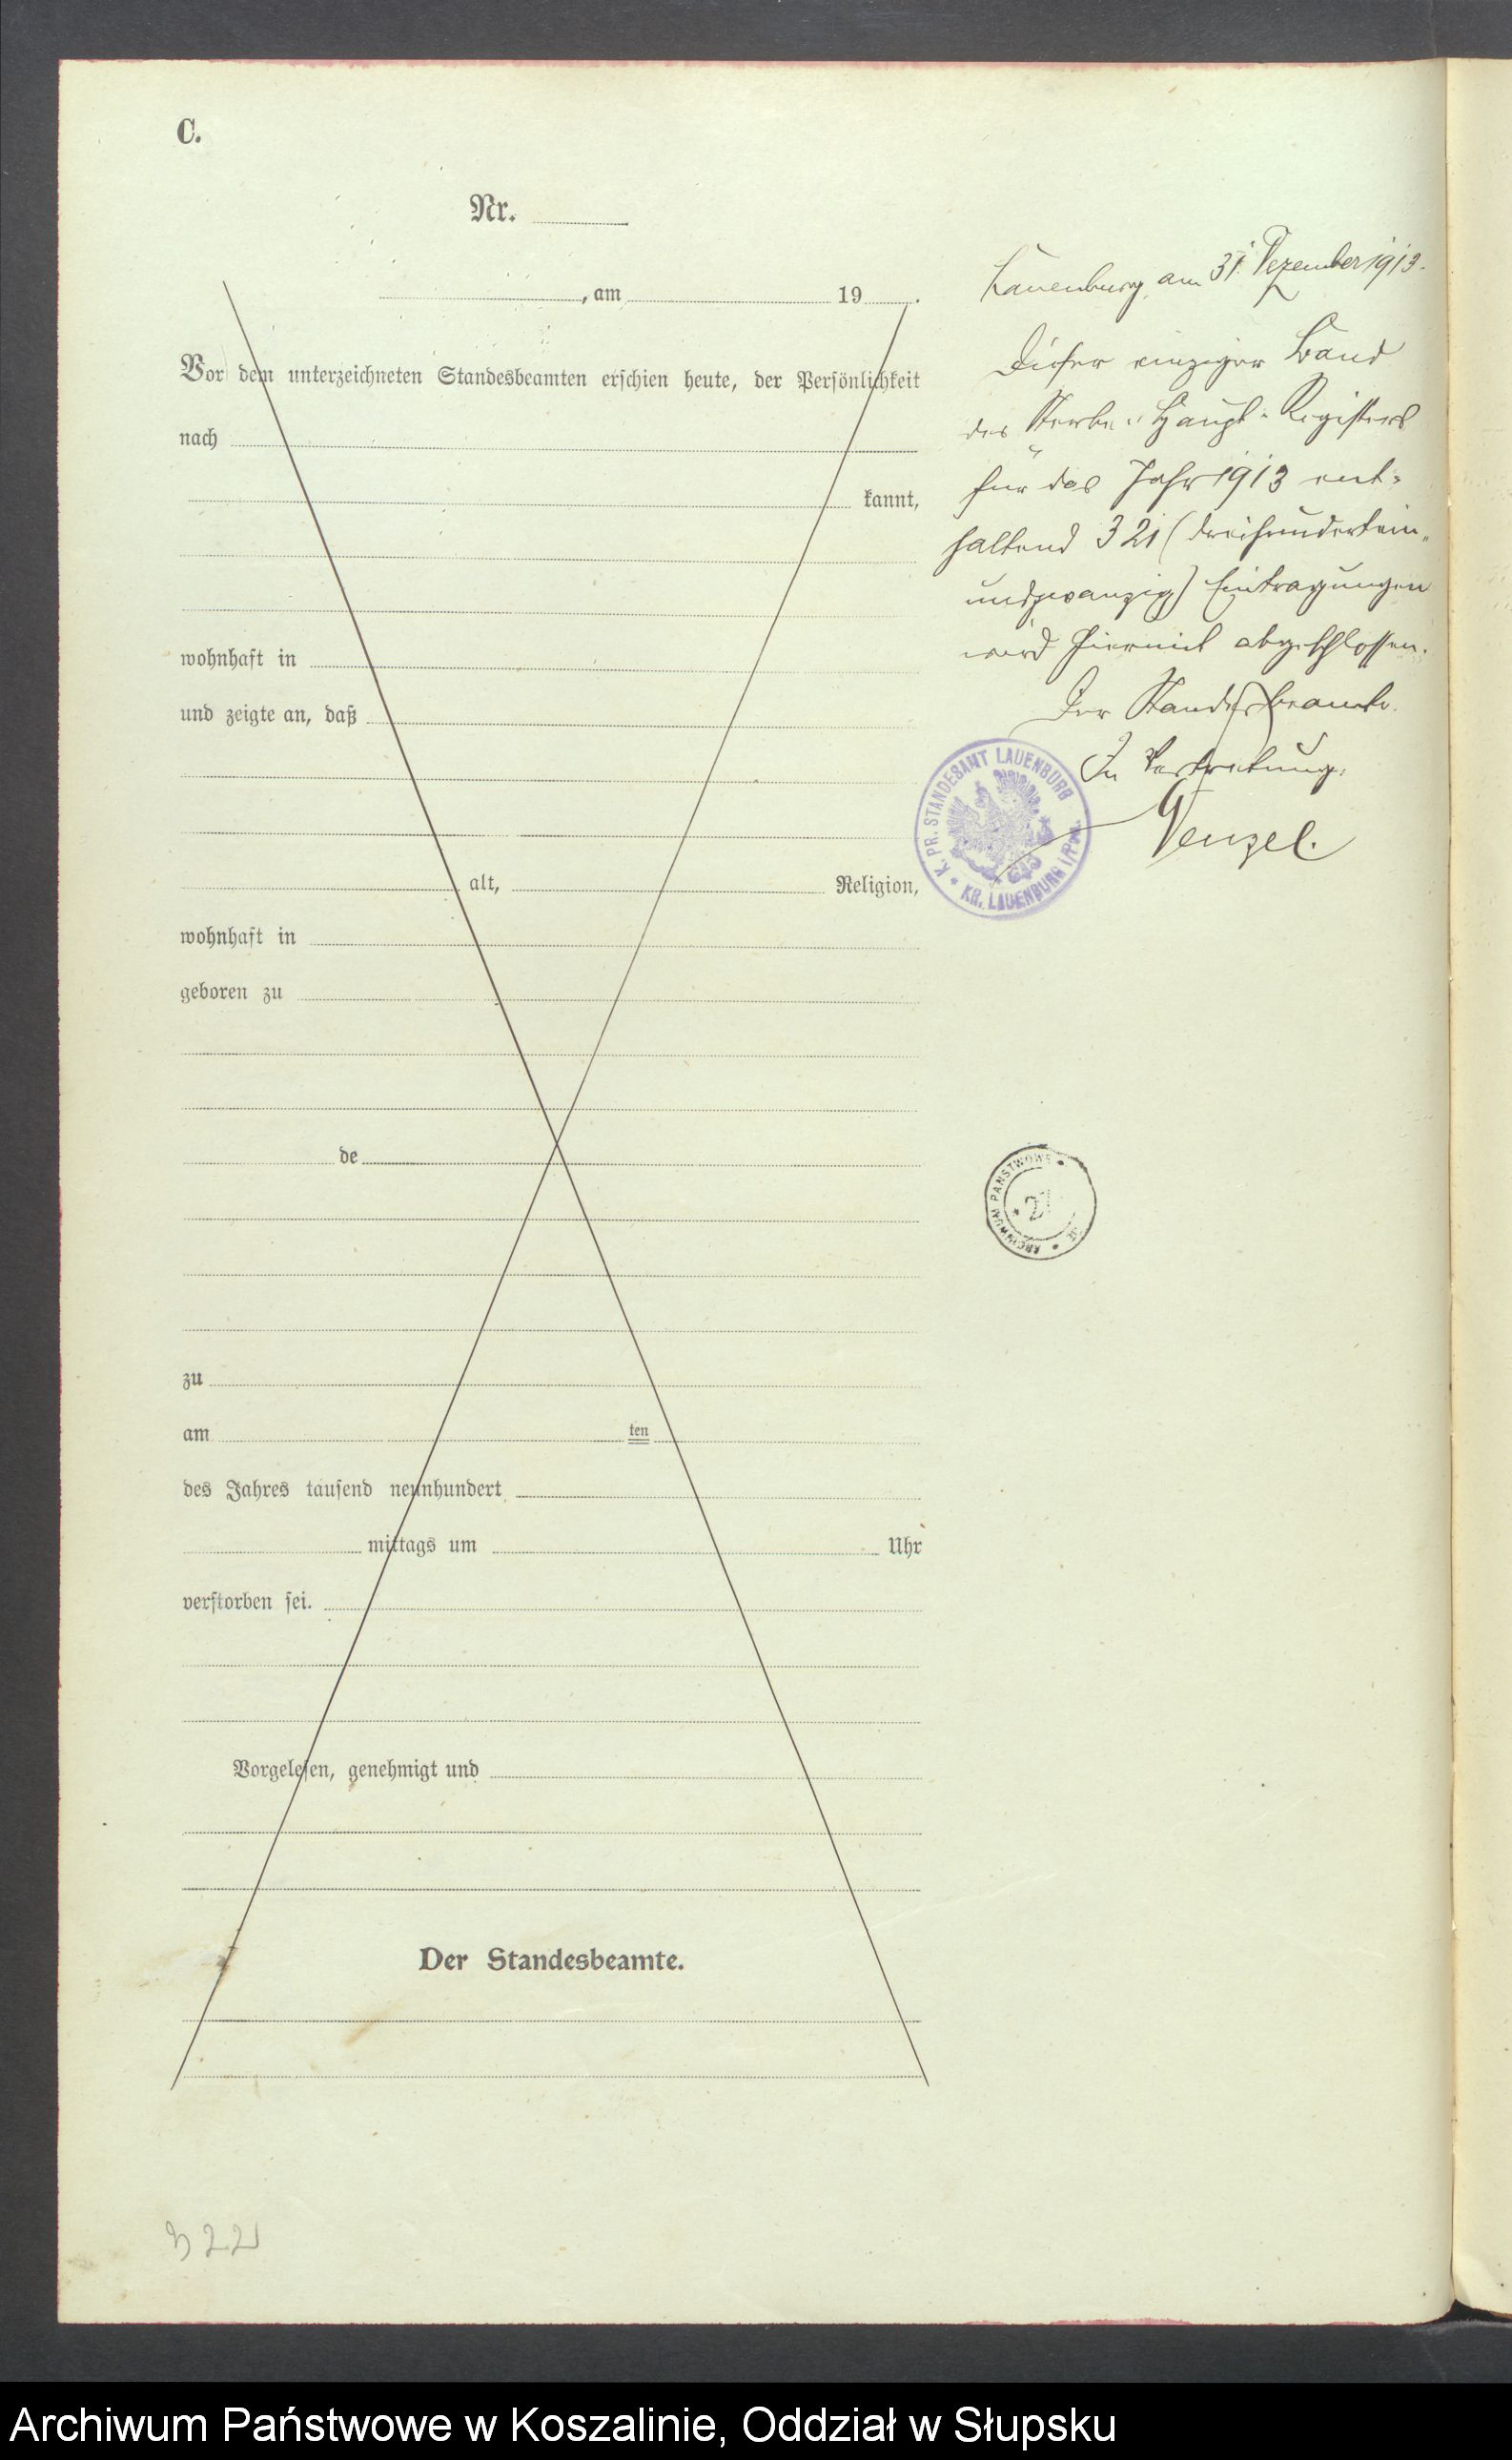 C.
Nr.
, am 19 .
Vor dem unterzeichneten Standesbeamten erschien heute, der Persönlichkeit
nach
kannt,
wohnhaft in
und zeigte an, daß
alt, Religion,
wohnhaft in
geboren zu
de
zu
am ten
des Jahres tausend neunhundert
mittags um Uhr
verstorben sei.
Vorgelesen, genehmigt und
Der Standesbeamte.
322
Lauenburg, am 31. Dezember 1913.
Dieser einziger Band
des Sterbe-Haupt-Registers
für das Jahr 1913 ent-
haltend 321 (dreihundertein-
undzwanzig) Eintragungen
wird hiermit abgeschlossen.
Der Standesbeamte.
In Vertretung:
Wenzel.
K. PR. STANDESAMT LAUENBURG i/Pom. * KR. LAUENBURG *
ARCHIWUM PAŃSTWOWE
Archiwum Państwowe w Koszalinie, Oddział w Słupsku